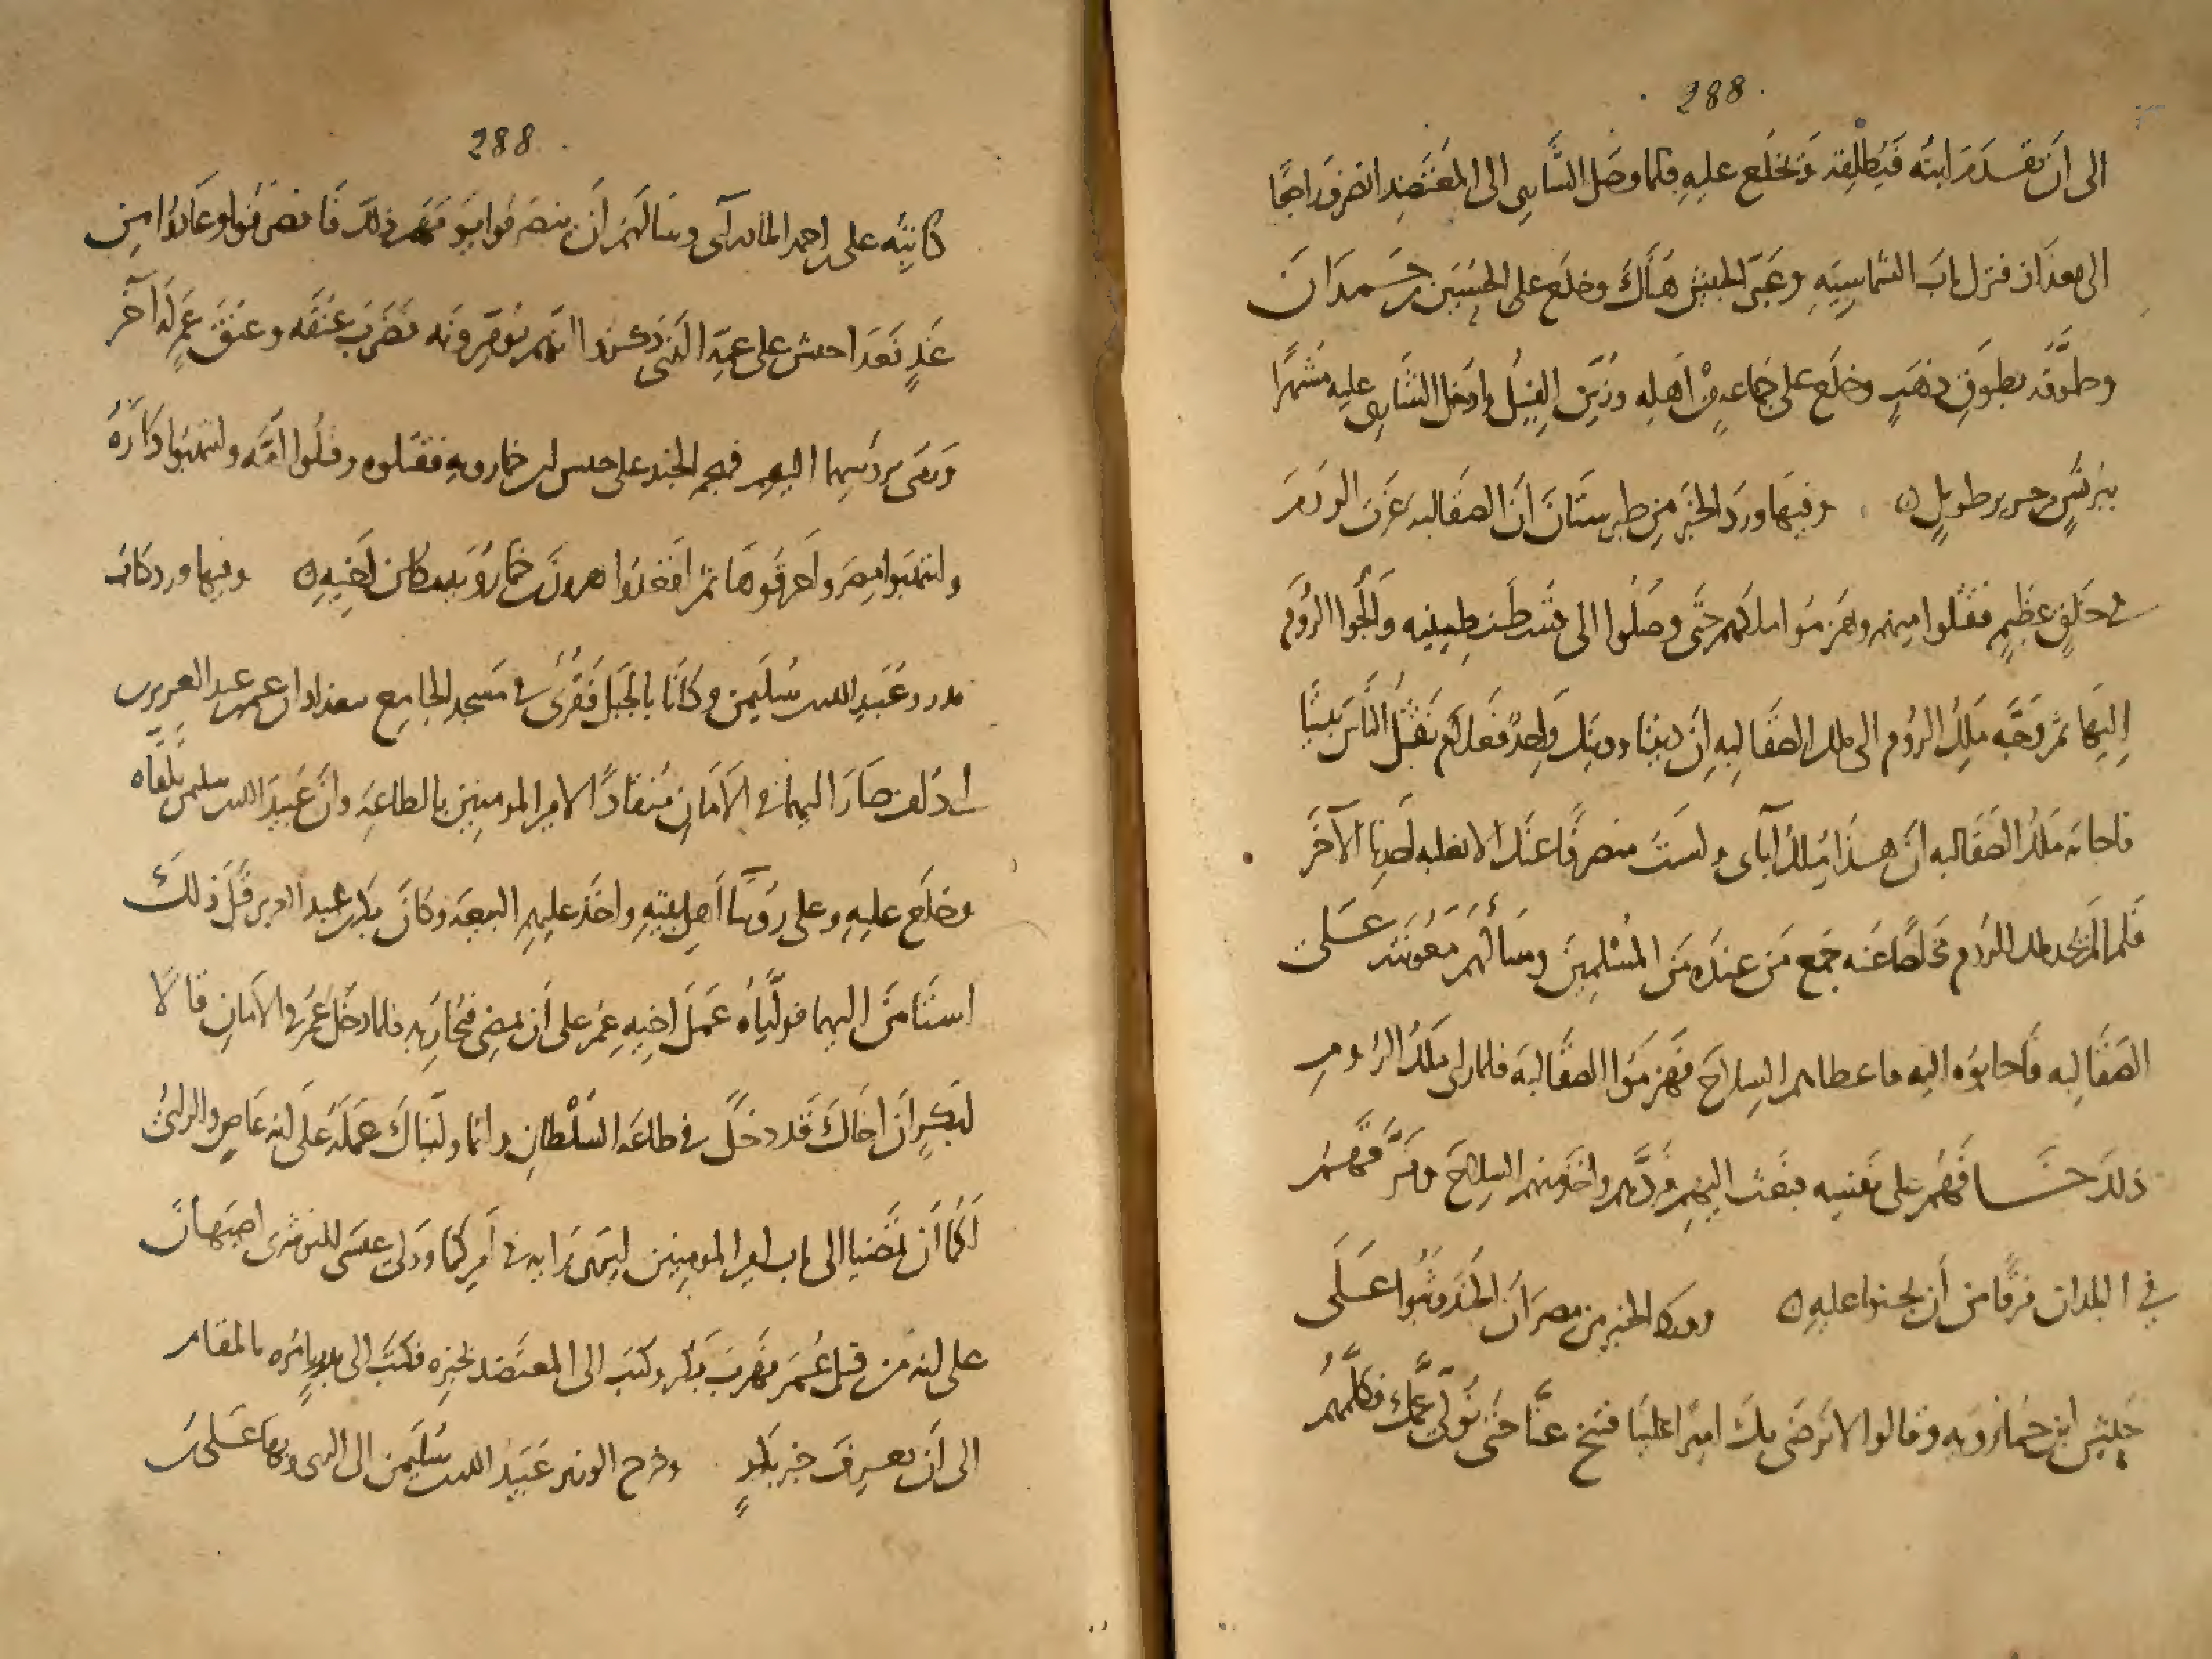 288
الى ان يقدم ابنه فيطلقه ويخلع عليه فلما وصل الشاري الى المعتضد انصرف راجعا
الى بغداذ فنزل باب الشماسيه وعبّى الجيش هناك وخلع على الحسين بن حمدان
وطوّقه بطوق ذهب وخلع على جماعه من اهله وزين الفيل وادخل الشاري عليه مشهرا
ببرنس حرير طويل ه وفيها ورد الخبر من طبرستان ان الصقالبه غزت الروم
في خلق عظيم فقتلوا منهم وهزموا ملكهم حتى وصلوا الى قسطنطينيه والجوا الروم
اليها ثم وجّه ملك الروم الى ملك الصقالبه ان ديننا ودينك واحد فعلام نقتل الناس بيننا
فاجابه ملك الصقالبه ان هذا ملك آباى ولست منصرفا عنك الا بغلبه احدنا الآخر
فلما لم يجد ملك الروم مخلصا عنه جمع من عنده من المسلمين وسألهم معونته على
الصقالبه فاجابوه اليه فاعطاهم السلاح فهزموا الصقالبه فلما راى ملك الروم
ذلك خافهم على نفسه فبعث اليهم فردهم واخذ منهم السلاح وفرقهم
في البلدان فرقا من ان يجنوا عليه ه وورد الخبر من مصر ان الجند وثبوا على
جيش ابن خمارويه وقالوا لا نرضى بك اميرا علينا فتنح عنا حتى نولى عمك فكلمهم
288
كاتبه على بن احمد الماذرآى وسالهم ان ينصرفوا يومهم ذلك فانصرفوا وعادوا من
غد فعدا جيش على عمه الذى ذكروا انهم يؤمرونه فضرب عنقه وعنق عم له آخر
ورمى برؤسهما اليهم فهجم الجند على جيش بن خمارويه فقتلوه وقتلوا امه وانتهبوا داره
وانتهبوا مصر واحرقوها ثم اقعدوا هرون بن خمارويه مكان اخيه ه وفيها ورد كتاب
بدر وعبيد الله بن سليمن وكانا بالجبل فقرى في مسجد الجامع ببغداد ان عمر بن عبد العزيز بن
ابى دلف صار اليهما في الامان منقادا لامير المومنين بالطاعه وان عبيد الله بن سليمن تلقاه
وخلع عليه وعلى روسا اهل بيته واخذ عليهم البيعه وكان بكر بن عبد العزيز قبل ذلك
استامن اليهما فولّياه عمل اخيه عمر على ان يمضى فيحاربه فلما دخل عمر في الامان قالا
لبكر ان اخاك قد دخل في طاعه السلطان وانما وليناك عمله على انه عاص والراى
لكما ان تمضيا الى باب امير المومنين ليرى رايه في امركما وولى عيسى النوشرى اصبهان
على انه من قبل عمر فهرب بكر وكتب الى المعتضد بخبره فكتب الى بدر يامره بالمقام
الى ان يعرف خبر بكر وخرج الوزير عبيد الله بن سليمن الى الرى وبها على بن